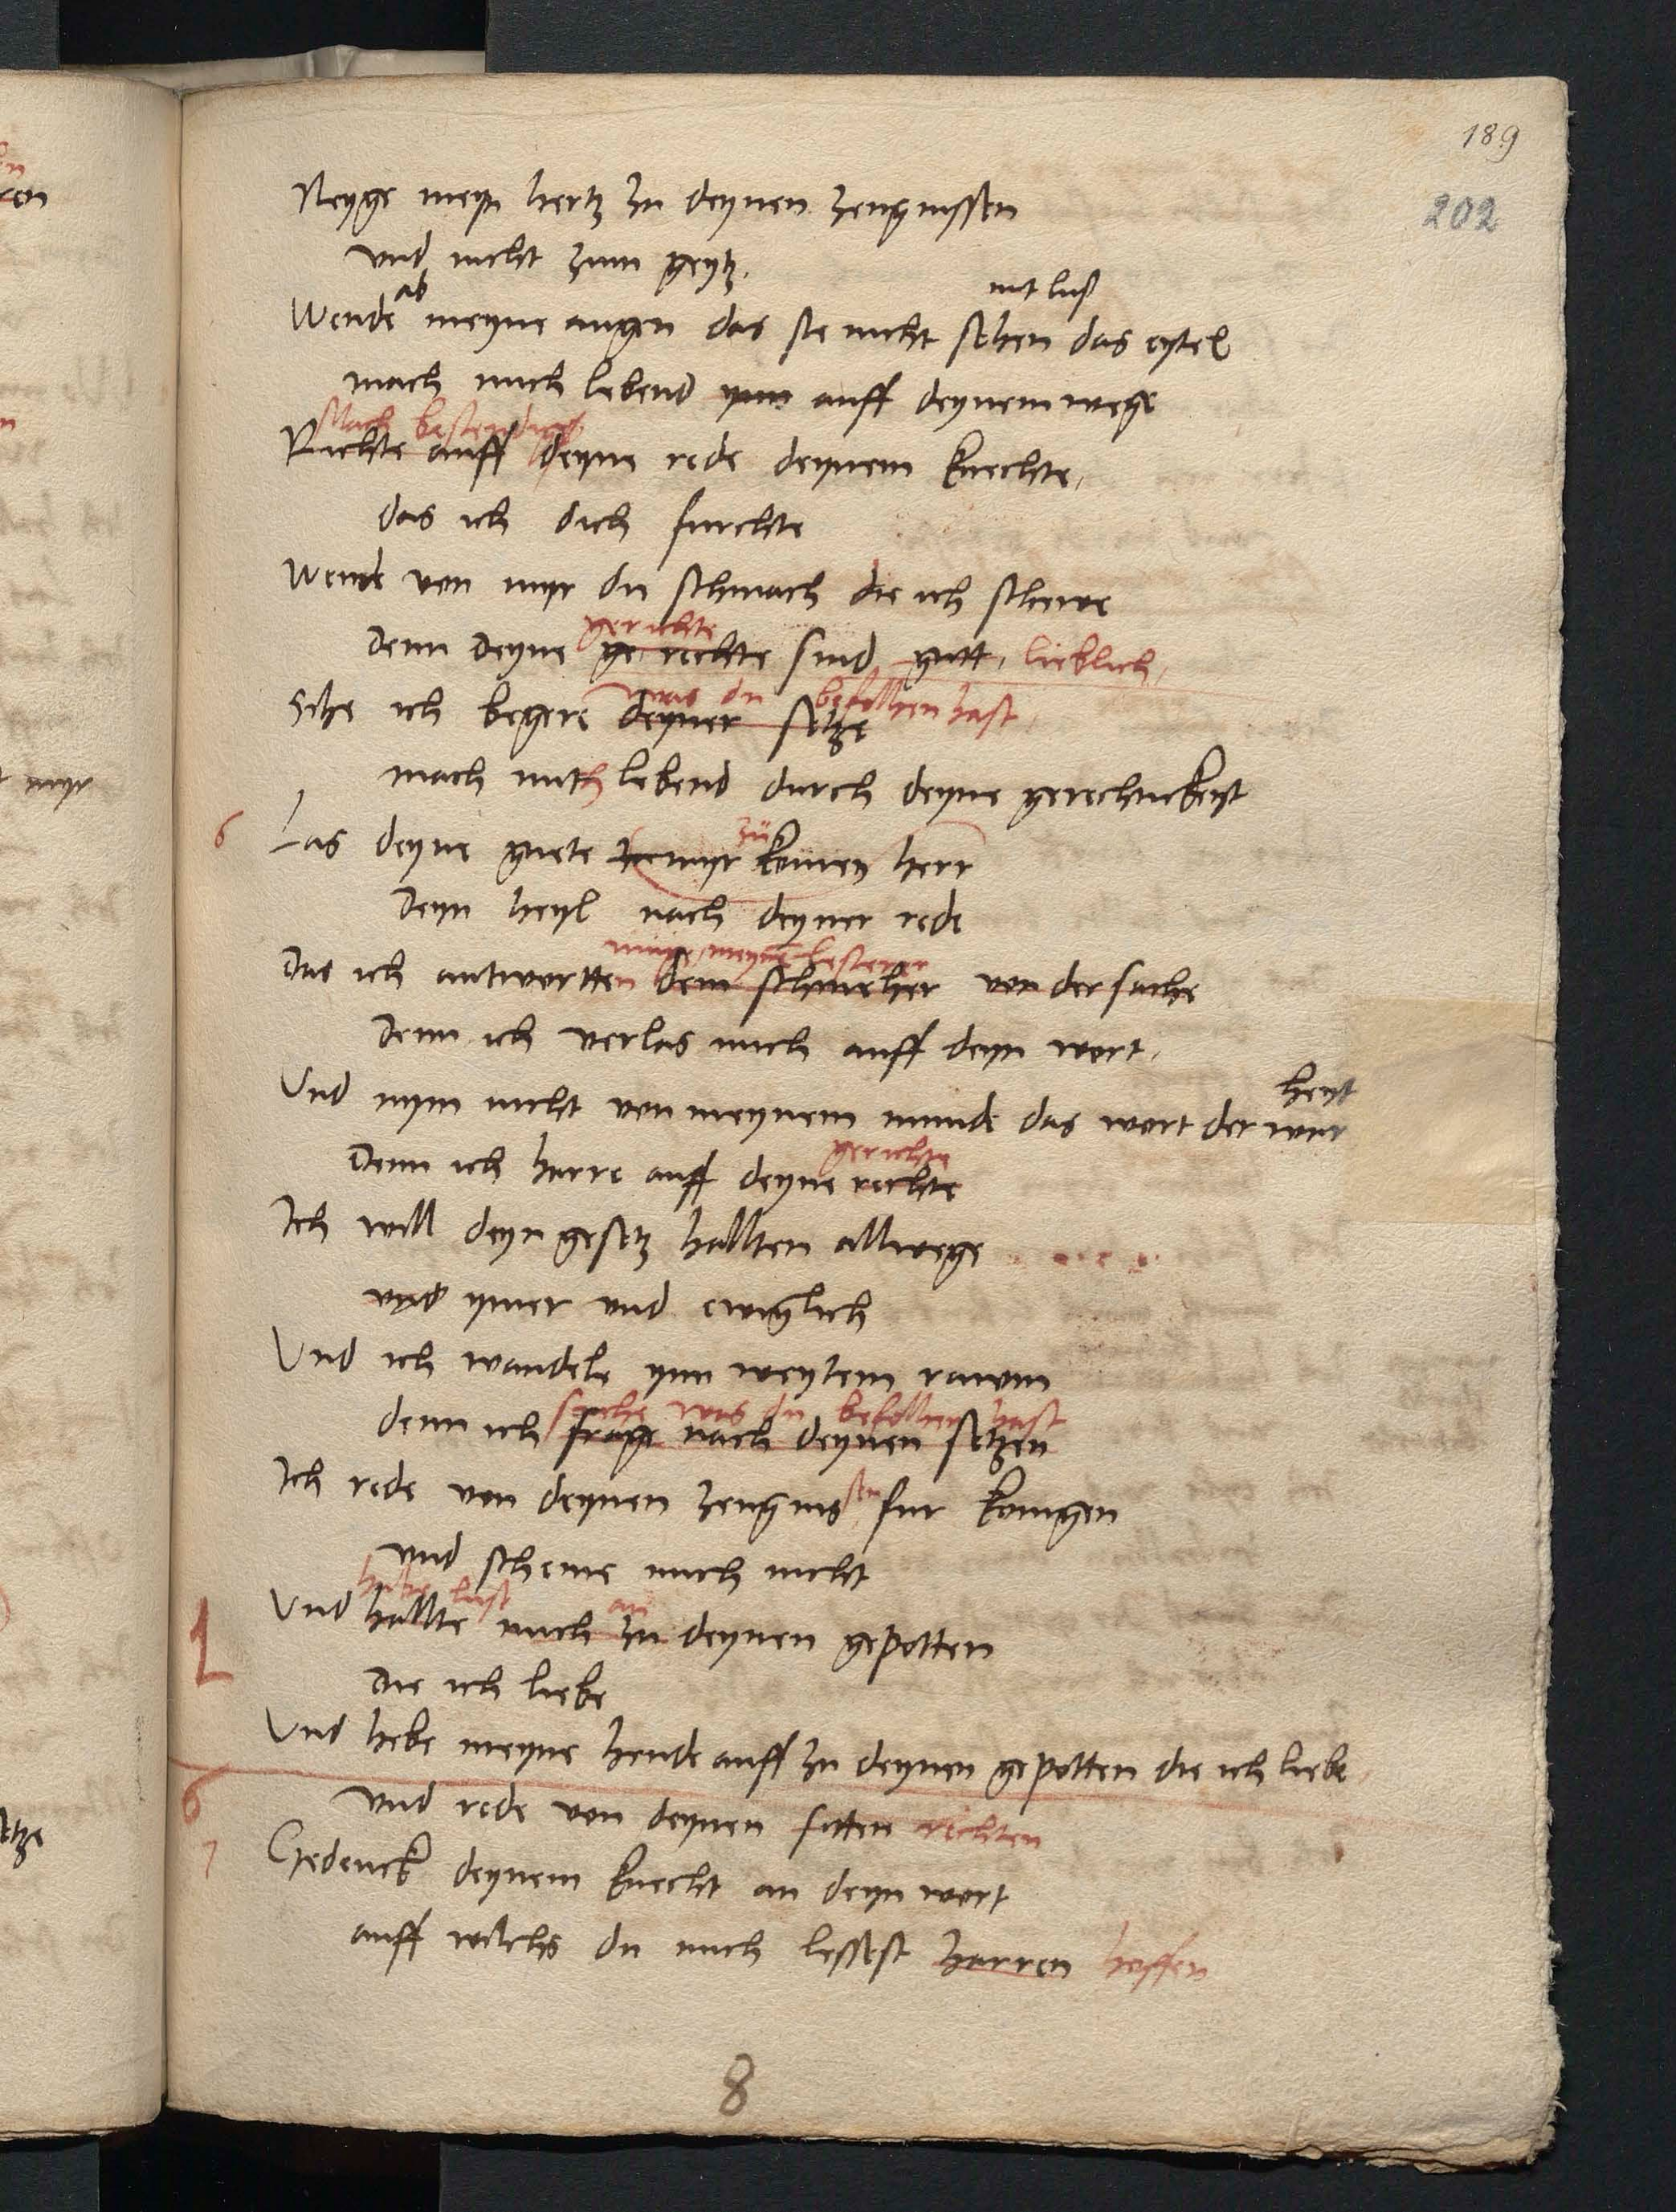 189
202
Neyge meyn hertz zu deynen zeugnissen
und nicht zum geytz.
ab mit lust
Wende meyne augen das sie nicht sehen das eytel
mach mich lebend ynn auff deynem wege
Mach bestendig
Richte auff deyne rede deynem knechte,
das ich dich furchte
Wende von myr die schmach die ich schewe
gerichte
Denn deyne ge rechte sind gutt, lieblich,
was du befolhen hast,
Sihe ich begere deyner setze
mach mich lebend durch deyne gerechtickeyt
6
zu
Las deyne guete myr komen herr
Deyn heyl nach deyner rede
muge meynem lesterer
Das ich antwortten dem schmeher von der sache
Denn ich verlas mich auff deyn wort,
heyt
Und nym nicht von meynem munde das wort der war
gerichte
Denn ich harre auff deyne rechte
Ich will deyn gesetz hallten allwege
und ymer und ewiglich
Und ich wandele ynn weytem rawm
suche was du befolhen hast
denn ich frage nach deynen setzen
Ich rede von deynen zeugnissen fur konigen
und scheme mich nicht
habe lust an
Und hallte mich zu deynen gepotten
Die ich liebe
Und hebe meyne hende auff zu deynen gepotten die ich liebe
6
und rede von deynen sitten rechten
7
Gedenck deynem knecht an deyn wort
auff wilchs du mich lessest harren hoffen
8